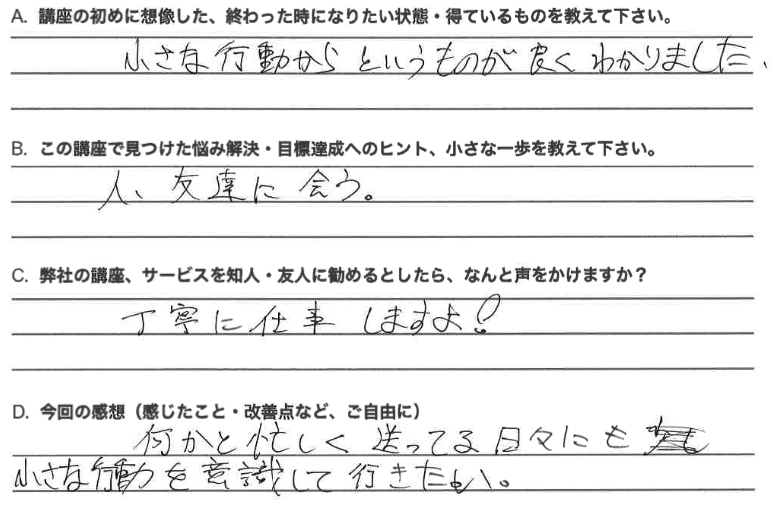 A. 講座の初めに想像した、終わった時になりたい状態・得ているものを教えて下さい。
小さな行動からというものが良くわかりました、
B. この講座で見つけた悩み解決・目標達成へのヒント、小さな一歩を教えて下さい。
人、友達に会う。
C. 弊社の講座、サービスを知人・友人に勧めるとしたら、なんと声をかけますか？
丁寧に仕事しますよ！
D. 今回の感想（感じたこと・改善点など、ご自由に）
何かと忙しく送ってる日々にも
小さな行動を意識して行きたい。